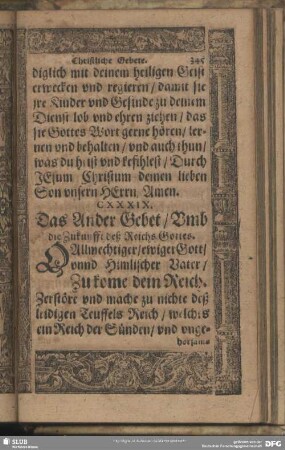 Christliche Gebete. 345
diglich mit deinem heiligen Geist
erwecken vnd regieren / damit sie
jre Kinder vnd Gesinde zu deinem
Dienst lob vnd ehren ziehen / das
sie Gottes Wort gerne hören / ler-
nen vnd behalten / vnd auch thun /
was du heist vnd befihlest / Durch
JEsum Christum deinen lieben
Son vnsern HErrn / Amen.
CXXXIX.
Das Ander Gebet / Vmb
die Zukunfft deß Reichs Gottes.
O Allmechtiger / ewiger Gott /
vnnd Himlischer Vater /
Zu kome dein Reich.
Zerstöre vnd mache zu nichte deß
leidigen Teuffels Reich / welchs
ein Reich der Sünden / vnd vnge-
horsams
SLUB
DFG